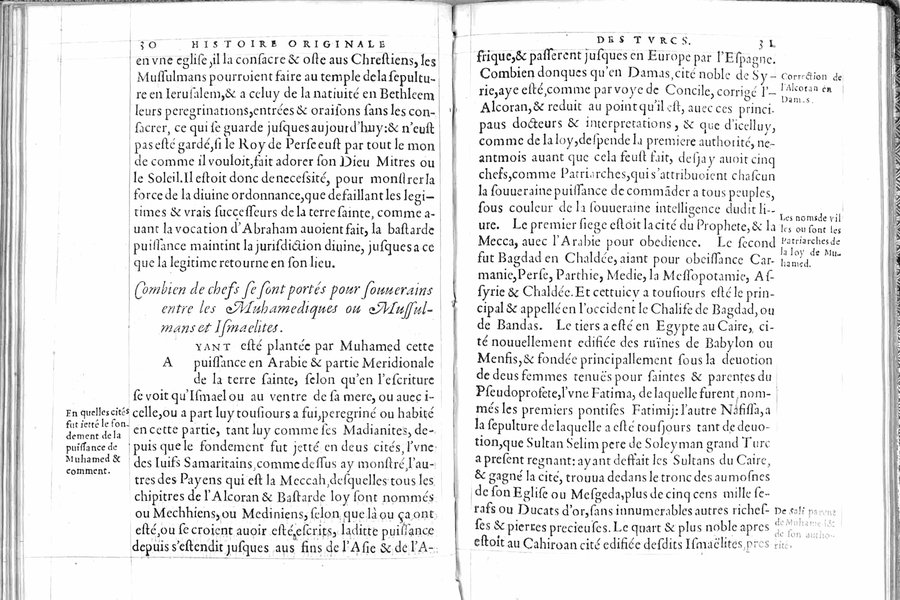 30 HISTOIRE ORIGINALE
en vne eglise, il la consacre & oste aus Chrestiens, les
Mussulmans pourroient faire au temple de la sepultu-
re en Ierusalem, & a celuy de la natiuité en Bethleem
leurs peregrinations, entrées & oraisons sans les con-
sacrer, ce qui se guarde jusques aujourd'huy: & n'eust
pas esté gardé, si le Roy de Perse eust par tout le mon
de comme il vouloit, fait adorer son Dieu Mitres ou
le Soleil. Il estoit donc de necessité, pour monstrer la
force de la diuine ordonnance, que defaillant les legi-
times & vrais successeurs de la terre sainte, comme a-
uant la vocation d'Abraham auoient fait, la bastarde
puissance maintint la jurisdiction diuine, jusques a ce
que la legitime retourne en son lieu.
Combien de chefs se sont portés pour souuerains
entre les Muhamediques ou Mussul-
mans et Ismaelites.
AYANT esté plantée par Muhamed cette
puissance en Arabie & partie Meridionale
de la terre sainte, selon qu'en l'escriture
se voit qu'Ismael ou au ventre de sa mere, ou auec i-
celle, ou a part luy tousiours a fui, peregriné ou habité
en cette partie, tant luy comme ses Madianites, de-
puis que le fondement fut jetté en deus cités, l'vne
des Iuifs Samaritains, comme dessus ay monstré, l'au-
tres des Payens qui est la Meccah, desquelles tous les
chipitres de l'Alcoran & Bastarde loy sont nommés
ou Mechhiens, ou Mediniens, selon que là ou ça ont
esté, ou se croient auoir esté, escrits, laditte puissance
depuis s'estendit jusques aus fins de l'Asie & de l'A-
En quelles cités
fut jetté le fon-
dement de la
puissance de
Muhamed &
comment.
DES TVRCS. 31
frique, & passerent jusques en Europe par l'Espagne.
Combien donques qu'en Damas, cité noble de Sy-
rie, aye esté, comme par voye de Concile, corrigé l'-
Alcoran, & reduit au point qu'il est, auec ces princi-
paus docteurs & interpretations, & que d'icelluy,
comme de la loy, despende la premiere authorité, ne-
antmois auant que cela feust fait, desjay auoit cinq
chefs, comme Patriarches, qui s'attribuoient chascun
la souueraine puissance de commãder a tous peuples,
sous couleur de la souueraine intelligence dudit li-
ure. Le premier siege estoit la cité du Prophete, & la
Mecca, auec l'Arabie pour obedience. Le second
fut Bagdad en Chaldée, aiant pour obeissance Car-
manie, Perse, Parthie, Medie, la Messopotamie, As-
syrie & Chaldée. Et cettuicy a tousiours esté le prin-
cipal & appellé en l'occident le Chalife de Bagdad, ou
de Bandas. Le tiers a esté en Egypte au Caire, ci-
té nouuellement edifiée des ruïnes de Babylon ou
Menfis, & fondée principallement sous la deuotion
de deus femmes tenuës pour saintes & parentes du
Pseudoprofete, l'vne Fatima, de laquelle furent nom-
més les premiers pontifes Fatimij: l'autre Nafissa, a
la sepulture de laquelle a esté tousjours tant de deuo-
tion, que Sultan Selim pere de Soleyman grand Turc
a present regnant: ayant deffait les Sultans du Caire,
& gagné la cité, trouua dedans le tronc des aumosnes
de son Eglise ou Mesgeda, plus de cinq cens mille se-
rafs ou Ducats d'or, sans innumerables autres riches-
ses & pierres precieuses. Le quart & plus noble apres
estoit au Cahiroan cité edifiée desdits Ismaëlites, pres
Correction de
l'Alcoran en
Damas.
Les noms de vil
les ou sont les
Patriarches de
la loy de Mu-
hamed.
De sali parent
de Muhamed &
de son autho-
rité.